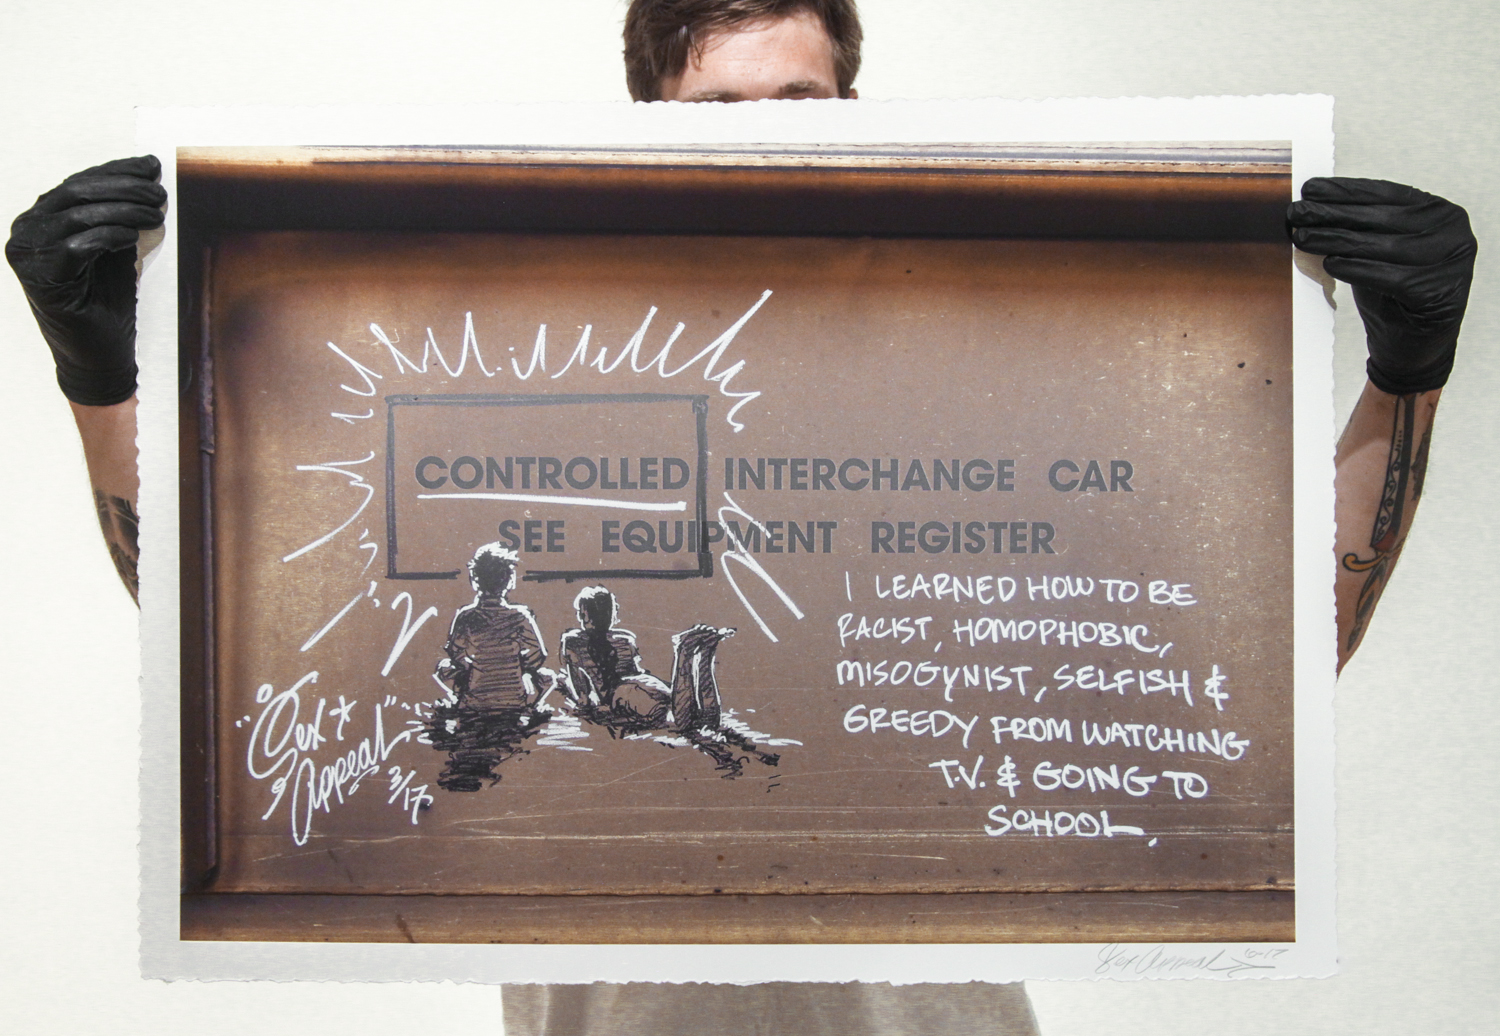 CONTROLLED INTERCHANGE CAR
SEE EQUIPMENT REGISTER
I LEARNED HOW TO BE
RACIST, HOMOPHOBIC,
MISOGYNIST, SELFISH &
GREEDY FROM WATCHING
T.V. & GOING TO
SCHOOL.
"Sex
Appeal"
3/17
Sex Appeal